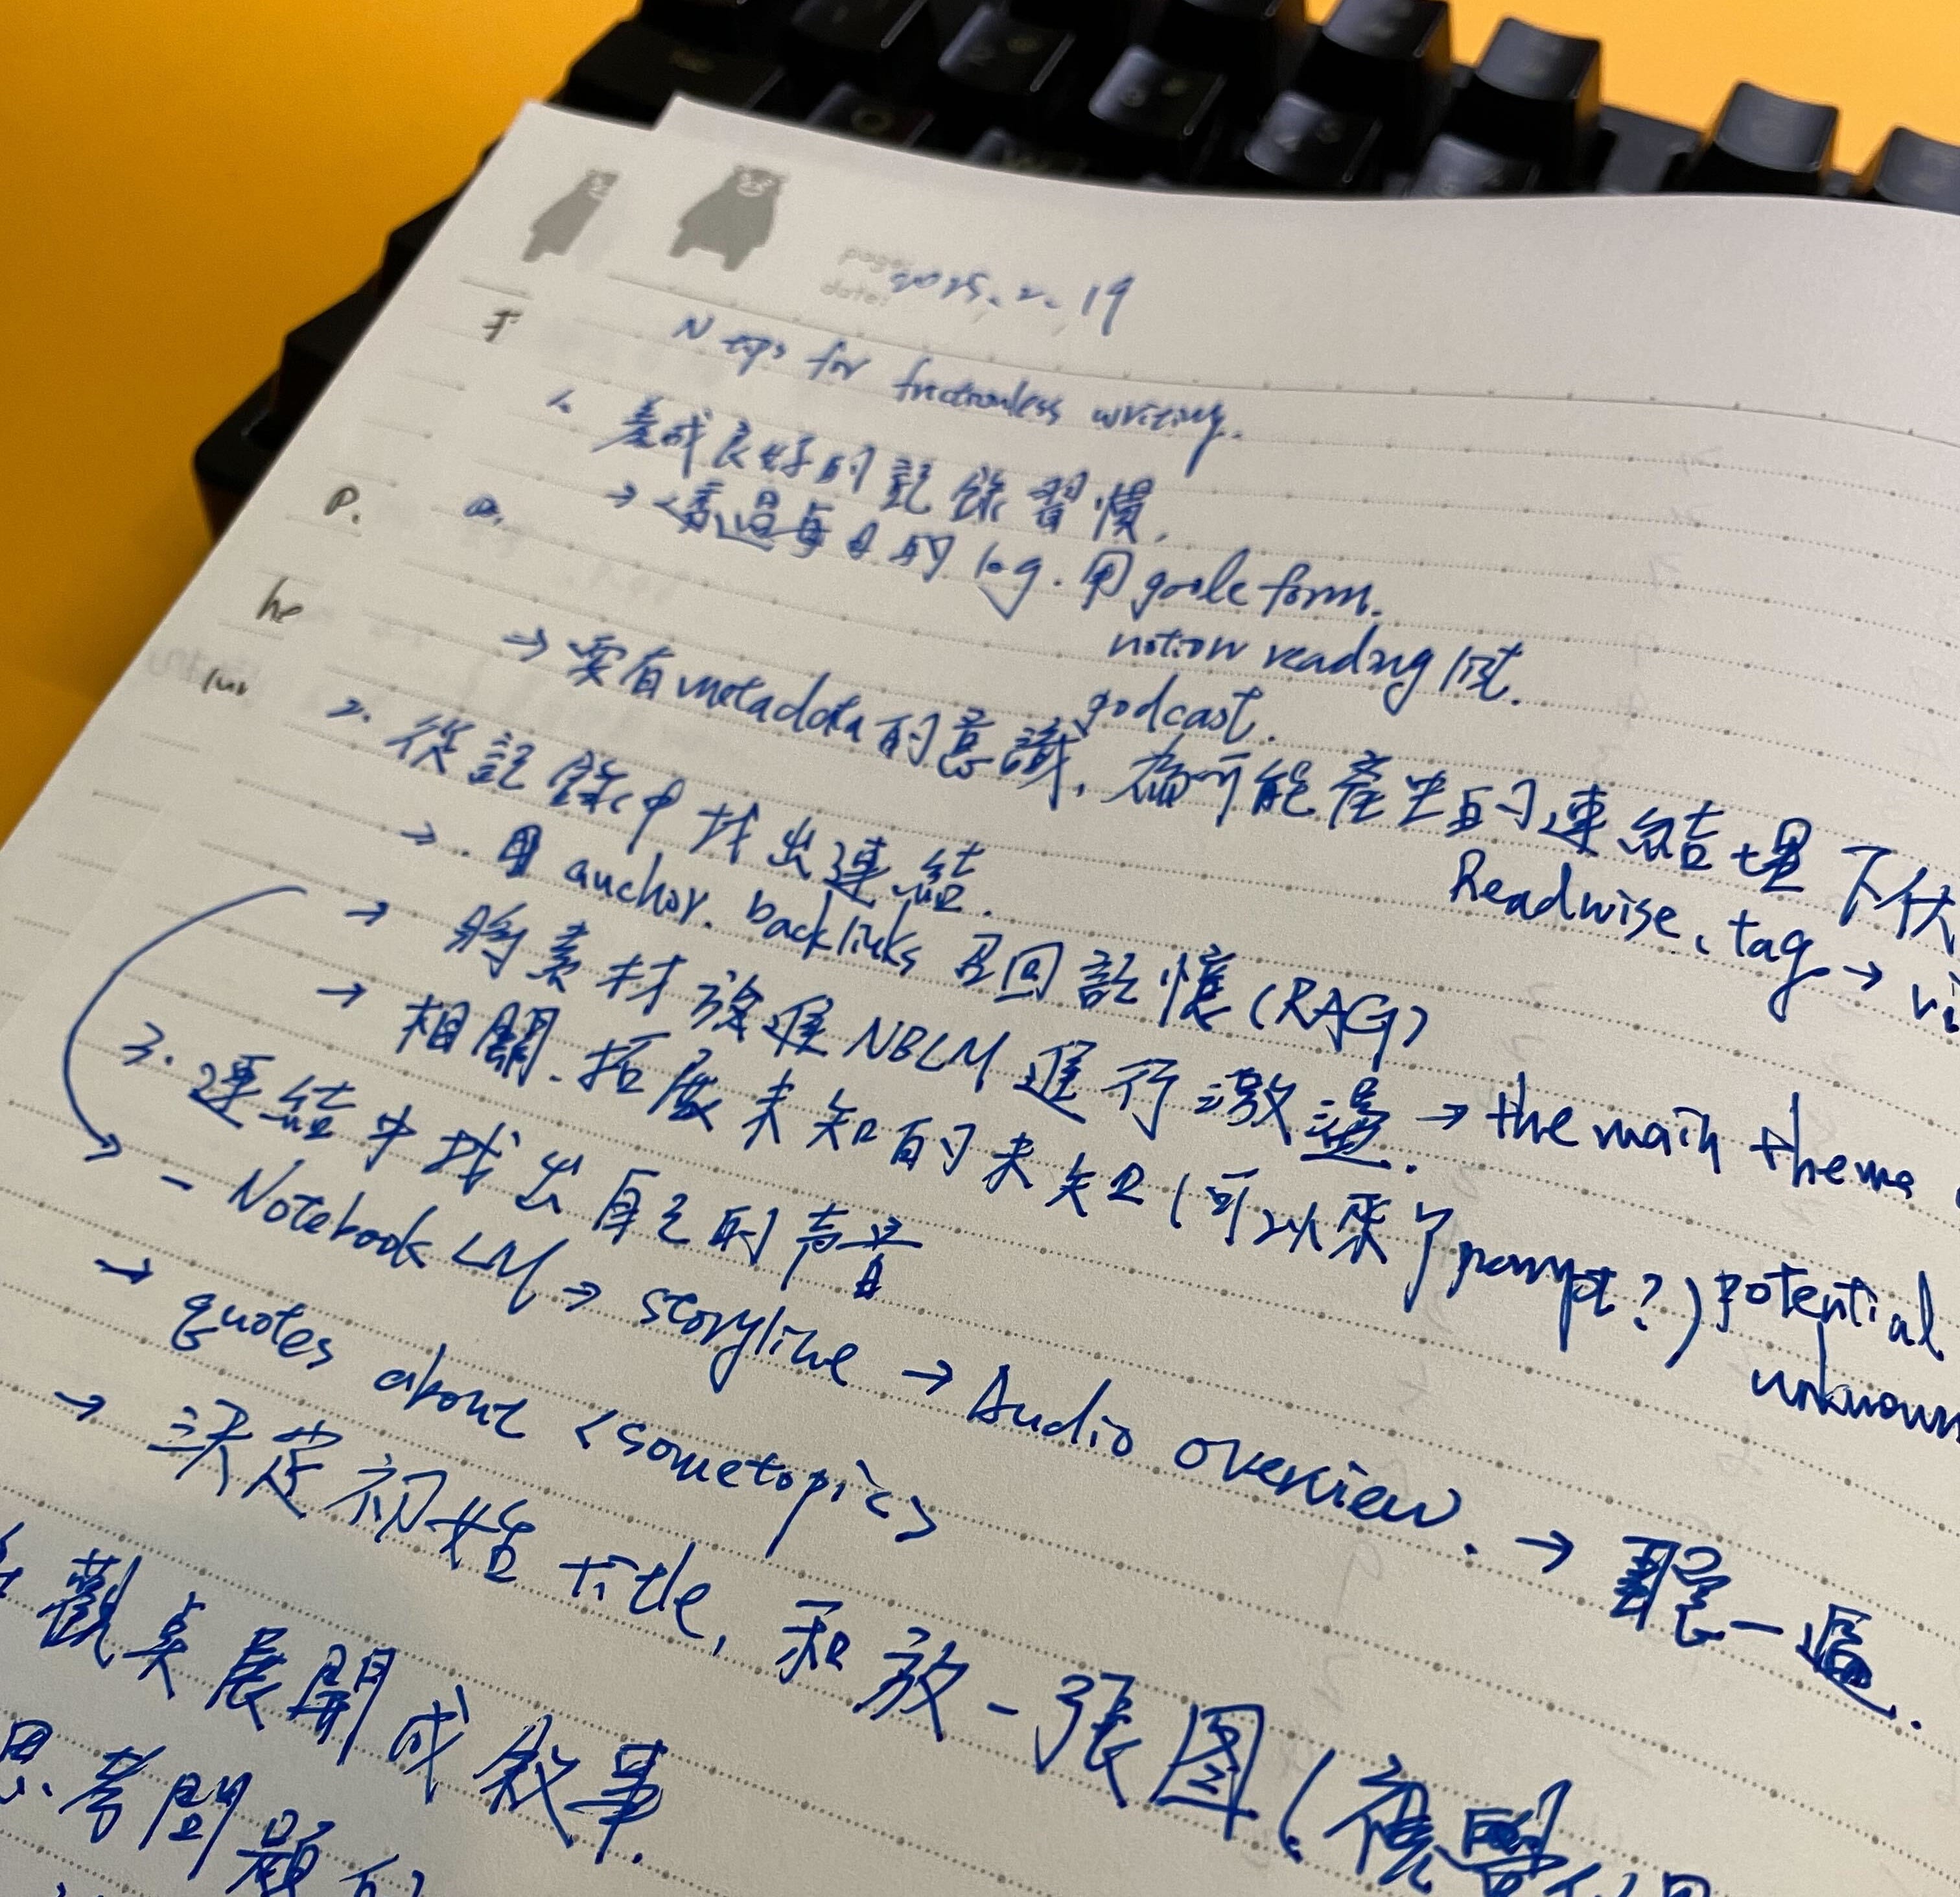 page:
date: 2025.2.19
N tips for frictionless writing.
1. 養成良好的記錄習慣.
→ 透過每日的 log. 用 goole form.
notion reading list.
podcast.
→ 要有 metadata 的意識, 為可能產生的連結埋下伏
Readwise、tag → vi
2. 從記錄中找出連結.
→ 用 anchor. backlinks 召回記憶 (RAG)
→ 將素材放進 NBLM 進行激盪. → the main theme
→ 相關. 拓展未知的未知 (可以來個 prompt?) potential
unknown
3. 連結中找出自己的声音
- Notebook LM → storyline → Audio overview. → 聽一遍.
→ quotes about <sometopic>
→ 決定初始 title, 和放一張图 (視覺
觀點展開成敘事.
思考問題的
P.
he